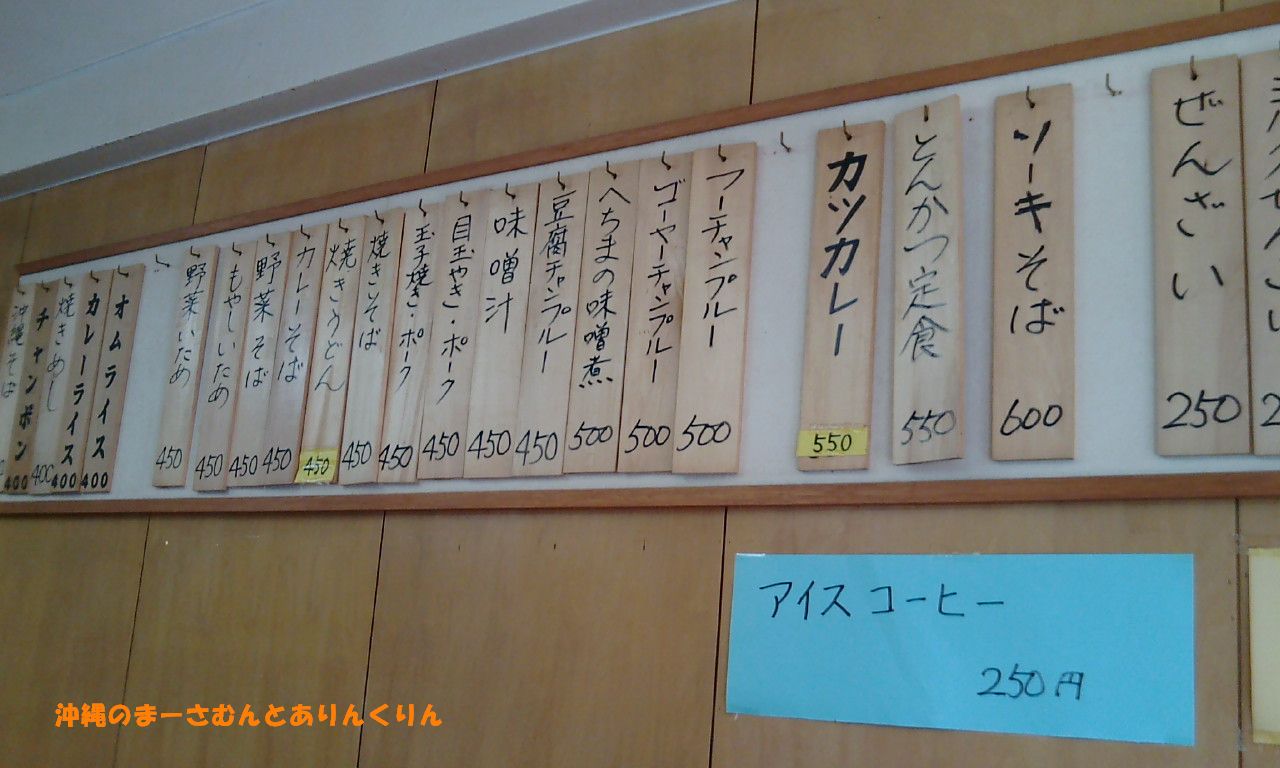 ぜんざい
250
ソーキそば
600
とんかつ定食
550
カツカレー
550
フーチャンプルー
500
ゴーヤーチャンプルー
500
へちまの味噌煮
500
豆腐チャンプルー
450
味噌汁
450
目玉やき・ポーク
450
玉子焼き・ポーク
450
焼きそば
450
焼きうどん
450
カレーそば
450
野菜そば
450
もやしいため
450
野菜いため
450
オムライス
400
カレーライス
400
焼きめし
400
チャンポン
400
沖縄そば
アイスコーヒー
250円
沖縄のまーさむんとありんくりん